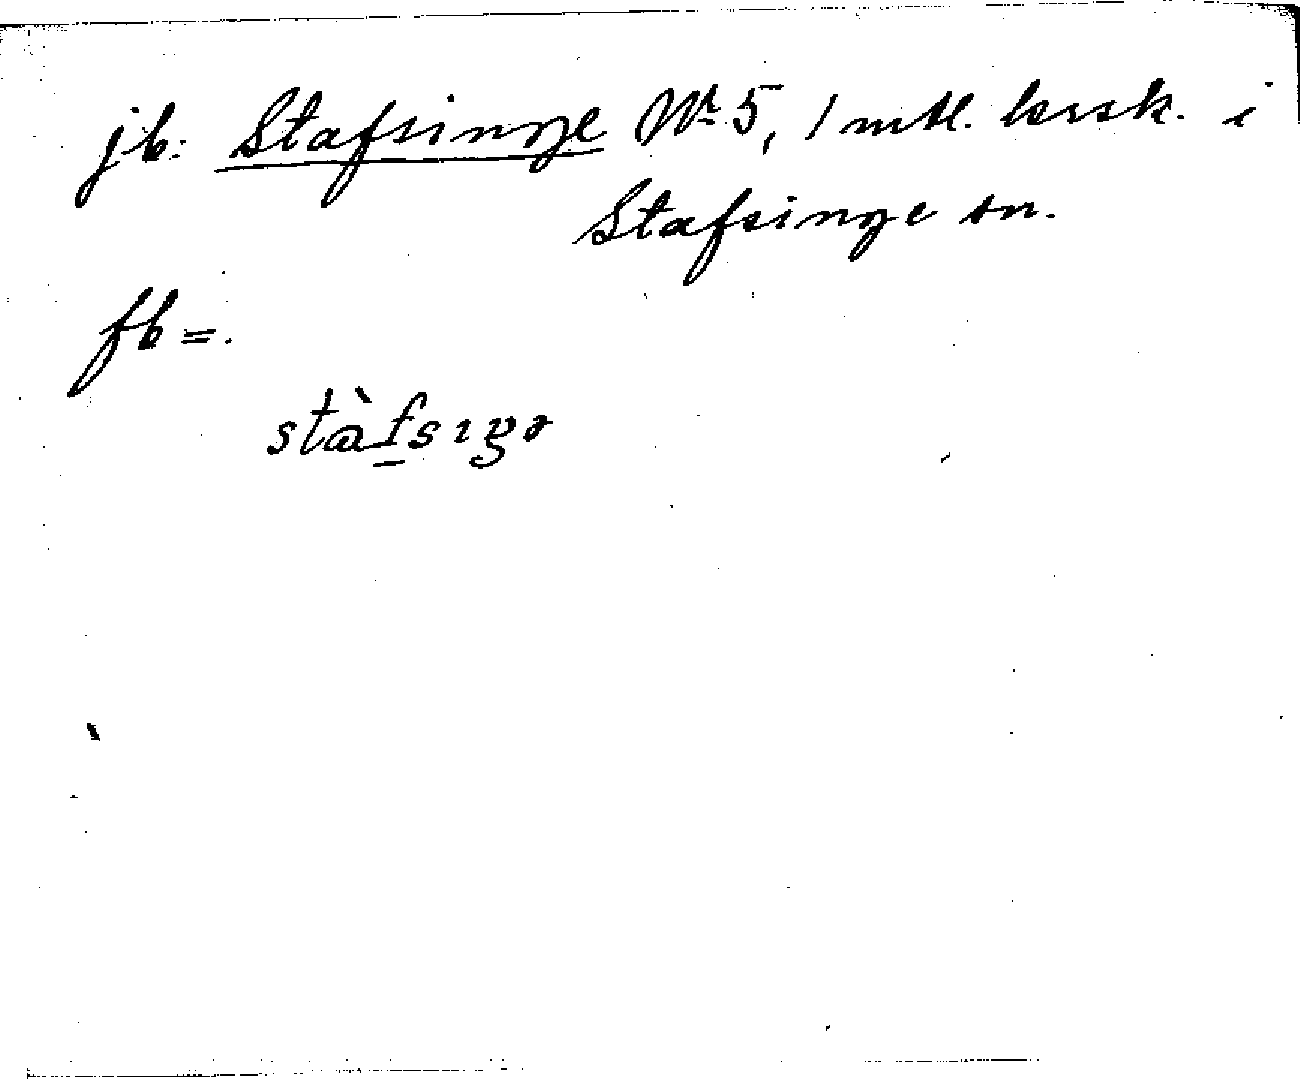 jb: Stafsinge Nr 5, 1 mtl. krsk. i
Stafsinge sn.
fb =.
stàfsıŋə